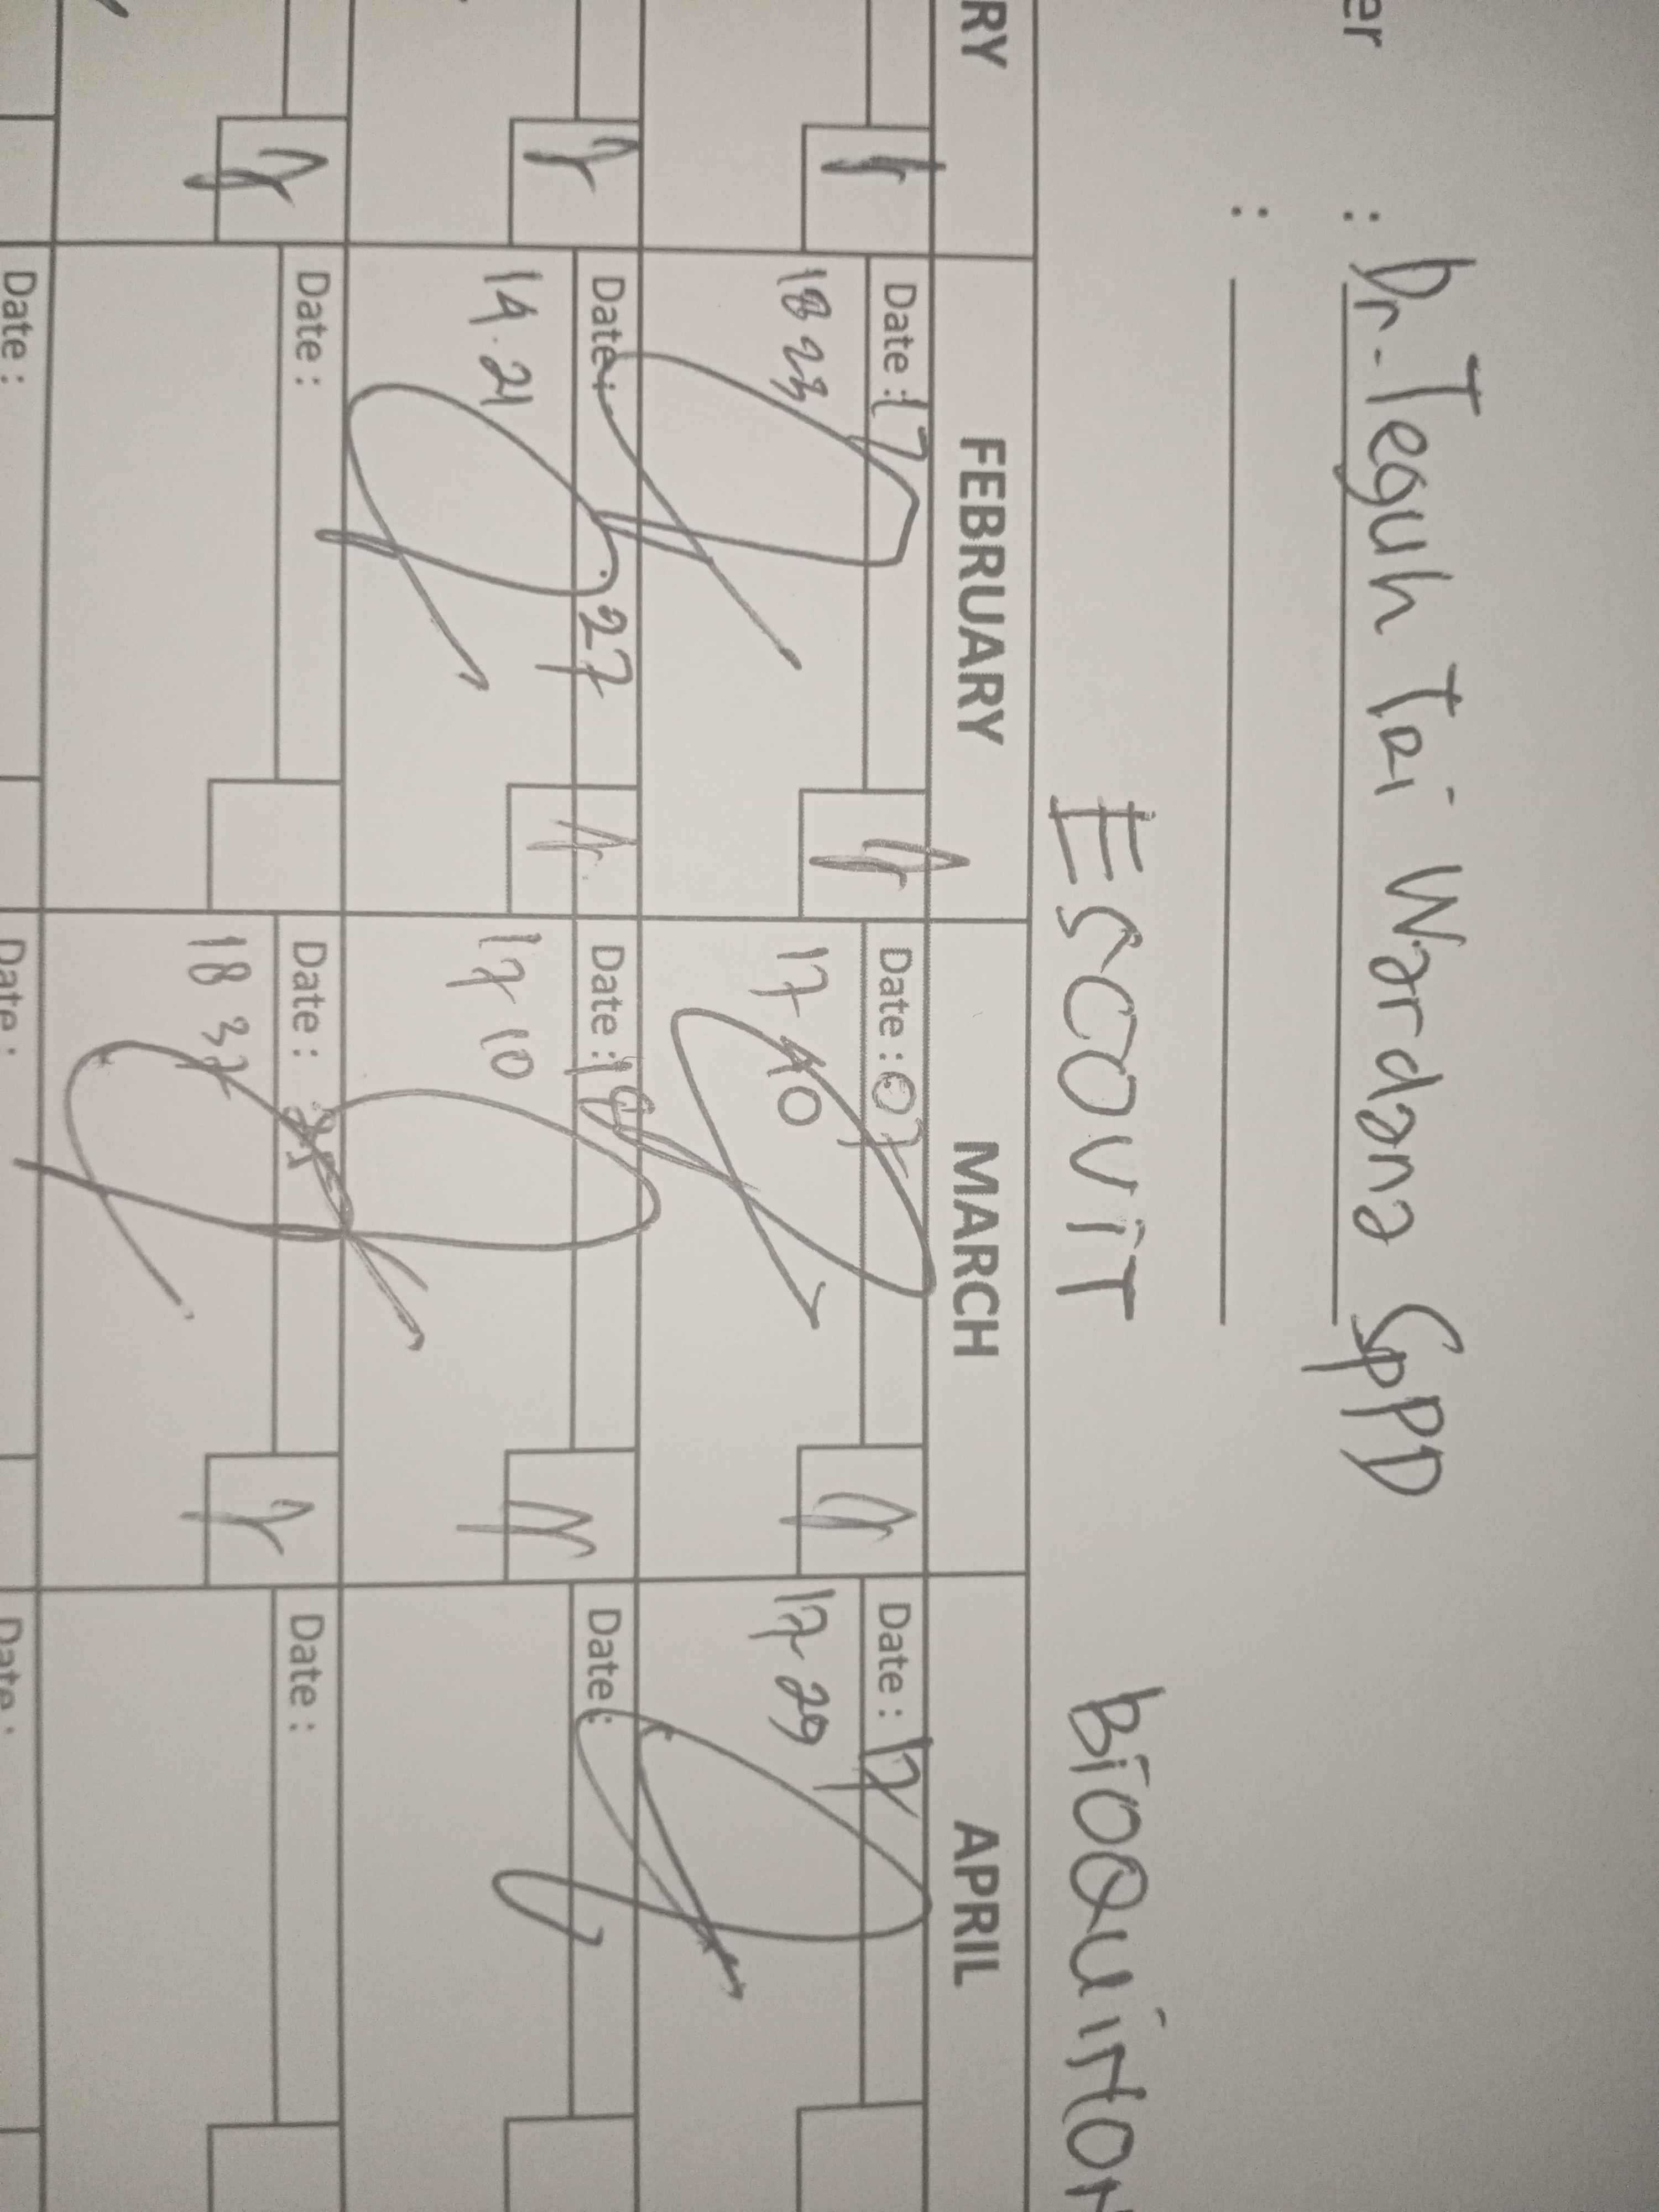 er : Dr. Teguh Tri Wardana SpPD
:
ESCOVIT BIOQUINON
RY FEBRUARY MARCH APRIL
Date : 17 Date : 07 Date : 17
18 23 17 40 17 29
Date : 27 Date : 18 Date :
14.21 17 10
Date : Date : 25 Date :
18 37
Date : Date : Date :